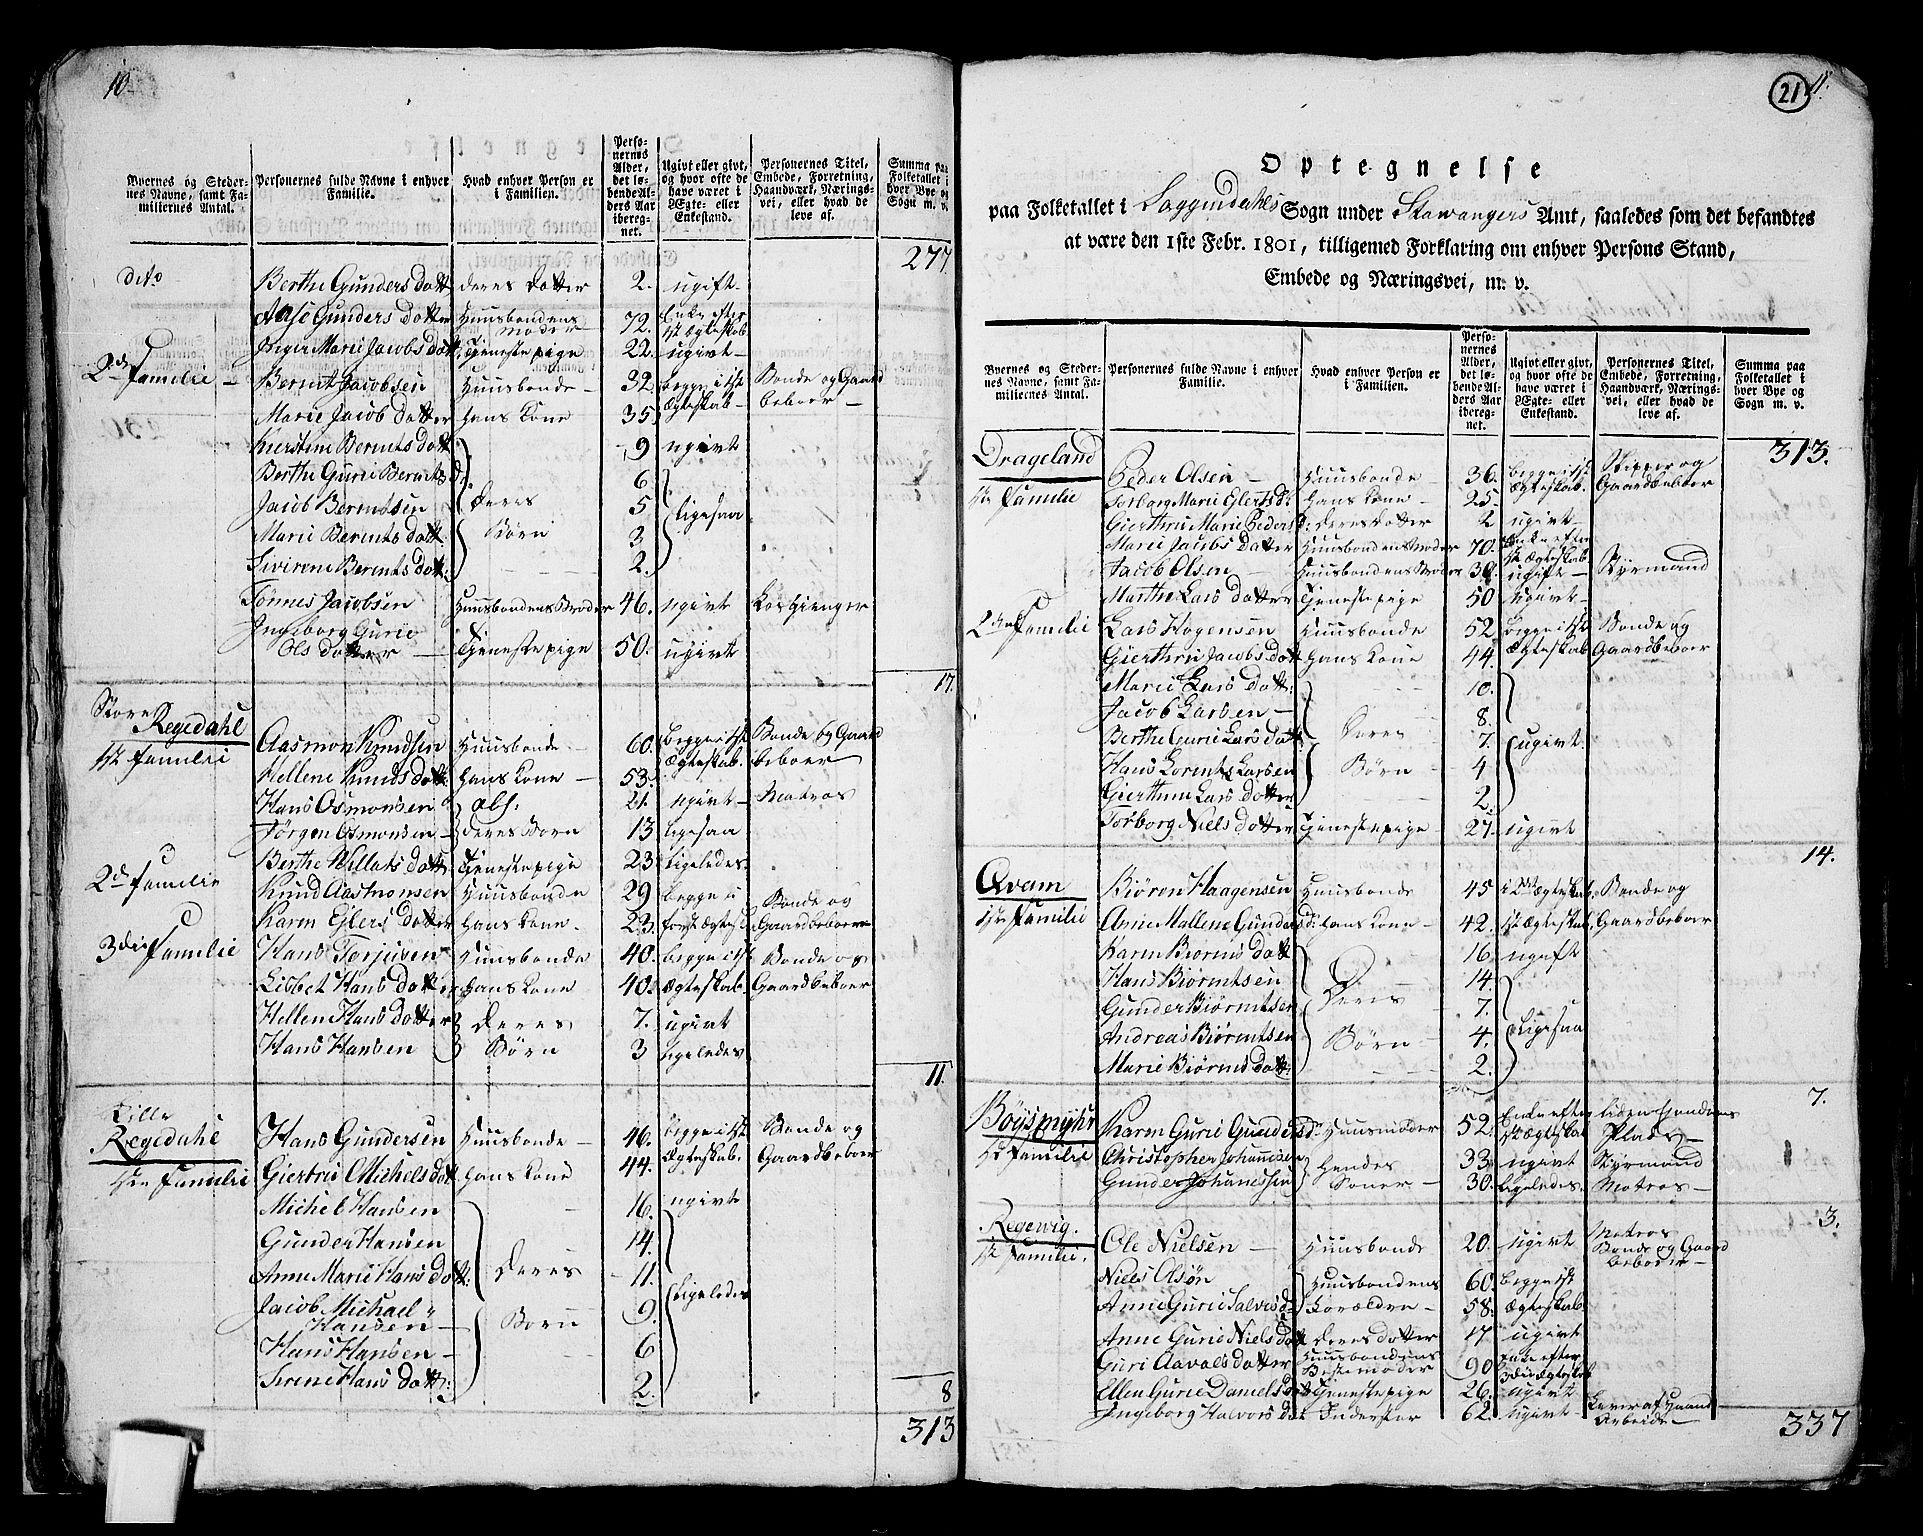 10.
Byernes og Steder-
nes Navne, samt Fa-
miliernes Antal.
Personernes fulde Navne i enhver
Familie.
Hvad enhver Person er
i Familien.
Perso-
nernes
Alder,
det lø-
bende Al-
ders Aar
ibereg-
net.
Ugivt eller givt,
og hvor ofte de
have været i
Ægte- eller
Enkestand.
Personernes Titel,
Embede, Forretning,
Haandværk, Nærings-
vei, eller hvad de
leve af.
Summa paa
Folketallet i
hver Bye og
Sogn m. v.
277
dito Berthe Gunders datt deres datter 2. ugift
Aase Gunders datter Huusbondens moder 72. Enke efter 1st Ægteskab
Inger Marie Jacobs datt: Tjeneste pige 22. ugivt
2den Familie Bernt Jacobsen Huusbonde 32 begge i 1st Bonde og Gaard
Marie Jacob datter Hans Kone 35 Ægteskab beboer
Kierstine Bernts datt 9 ugivt
Berthe Gurie Bernts d. 6
Jacob Berntsen Deres 5 ligesaa
Marie Berents datt. Børn 3
Sivirene Berents datt: 2.
Tønnes Jacobsen Huusbondens Broder 46. ugivt Losgienger
Ingeborg Gurie
Ols datter Tjeneste pige 50. ugivt
17.
Store
Regedahl Aasmon Knudsen Huusbonde 60. begge i 1st Bonde og Gaard
1ste Familie Hellene Knuds datt Hans Kone 53. Ægteskab. beboer
Hans Osmonsen abs. 21. ugivt Matros
Jørgen Osmonsen deres Børn 13 ligesaa
Berthe Willats datt: Tjeneste pige 23 ligeledes
2de Familie Knud Aasmonsen Huusbonde 29 begge i Bonde og
Karen Ejlers datter Hans Kone. 23. først Ægtesk: Gaardbeboer
3die Familie Hans Torjusen Huusbonde 40. begge i 1st Bonde og
Lisbet Hans datter Hans Kone 40. Ægteskab. Gaardbeboer
Hellen Hans datter Deres 7. ugivt
Hans Hansen Børn 3 ligeledes
11.
Lille
Regedahl Hans Gundersen Huusbonde 46. begge i 1st Bonde og
1ste Familie Giertrue Michels datt Hans Kone 44. Ægteskab. Gaardbeboer
Michel Hansen 16. ugivt
Gunder Hansen 14.
Anne Marie Hans datt: Deres 11. Ligeledes
Jacob Michael
Hansen Børn 9.
Hans Hansen 6
Serene Hans datt: 2.
8
313
21
11.
Optegnelse
paa Folketallet i Soggendahls Sogn under Stawangers Amt, saaledes som det befandtes
at være den 1ste Febr. 1801, tilligemed Forklaring om enhver Persons Stand,
Embede og Næringsvei, m. v.
Byernes og Steder-
nes Navne, samt Fa-
miliernes Antal.
Personernes fulde Navne i enhver
Familie.
Hvad enhver Person er
i Familien.
Perso-
nernes
Alder,
det lø-
bende Al-
ders Aar
ibereg-
net.
Ugivt eller givt,
og hvor ofte de
have været i
Ægte- eller
Enkestand.
Personernes Titel,
Embede, Forretning,
Haandværk, Nærings-
vei, eller hvad de
leve af.
Summa paa
Folketallet i
hver Bye og
Sogn m. v.
313.
Drageland Peder Olsen Huusbonde 36. begge i 1st Skipper og
1ste Familie Torborg Marie Elerts d: Hans Kone 25. Ægteskab. Gaardbeboer
Gierthru Marie Peders d: deres datter 2 ugivt
Marie Jacobs datter Huusbondens Moder 70. Enke efter 1st Ægteskab
Jacob Olsen Huusbondens Broder 30. ugift Styrmand
Marthe Lars datter Tjeneste pige 50 ugivt
2den Familie Lars Hogensen Huusbonde 52 begge i 1st Bonde og
Gierthru Jacobs datt Hans Kone 44. Ægteskab Gaardbeboer
Marie Lars datt: 10.
Jacob Larsen 8.
Berthe Gurie Lars datt Deres 7. ugivt
Hans Lorents Larsen Børn 4
Gierthrue Lars datter 2.
Torborg Niels datter Tjeneste pige 27. ugivt
14.
Qvam Biøron Haagensen Huusbonde 45 i 2det Ægteskab Bonde og
1ste Familie Anne Mallene Gunders d: Hans Kone 42. 1st Ægteskab. Gaardbeboer
Karen Biørns datt 16 ugift
Hans Biørntsen 14.
Gunder Biørntsen Deres 7.
Andreas Biørntsen Børn 4. Ligesaa
Marie Biørns datt: 2.
7.
Bøysmyhr Karen Gurie Gunders d: Huusmoder 52. Enke efter liden Ejendoms
1ste Familie 1st Ægteskab Plads
Christopher Johannesen Hendes 33 ugivt Styrmand
Gunder Johannessen Sønner 30. ligeledes. Matros
3.
Regewig. Ole Nielsen Huusbonde 20. ugivt Matros
1ste Familie. Bonde og Gaard
beboer
Niels Olsøn Huusbondens 60. begge i 1st
Anne Gurie Salves d Forældre 58. Ægteskab.
Anne Gurie Niels datt deres datter 17 ugivt
Guri Aavals datter Huusbondens Bestemoder 90 Enke efter 3die Ægteskab
Ellen Gurie Daniels dat Tjeneste pige 26. ugivt
Ingeborg Halvors dat Inderster 62. ugivt Lever af Haand
Arbeide
337